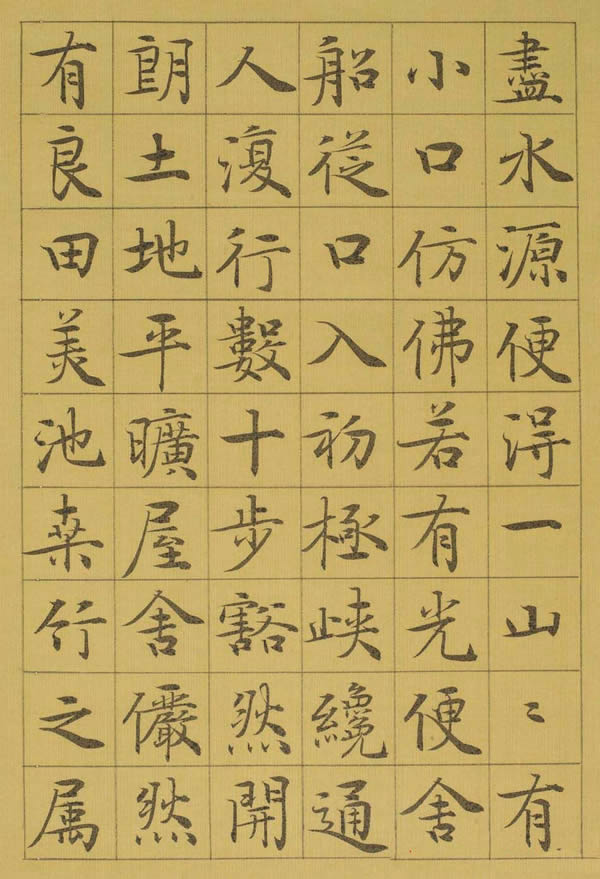 盡水源便得一山〻有
小口仿佛若有光便舍
船從口入初極峽纔通
人復行數十步豁然開
朗土地平曠屋舍儼然
有良田美池桒竹之属